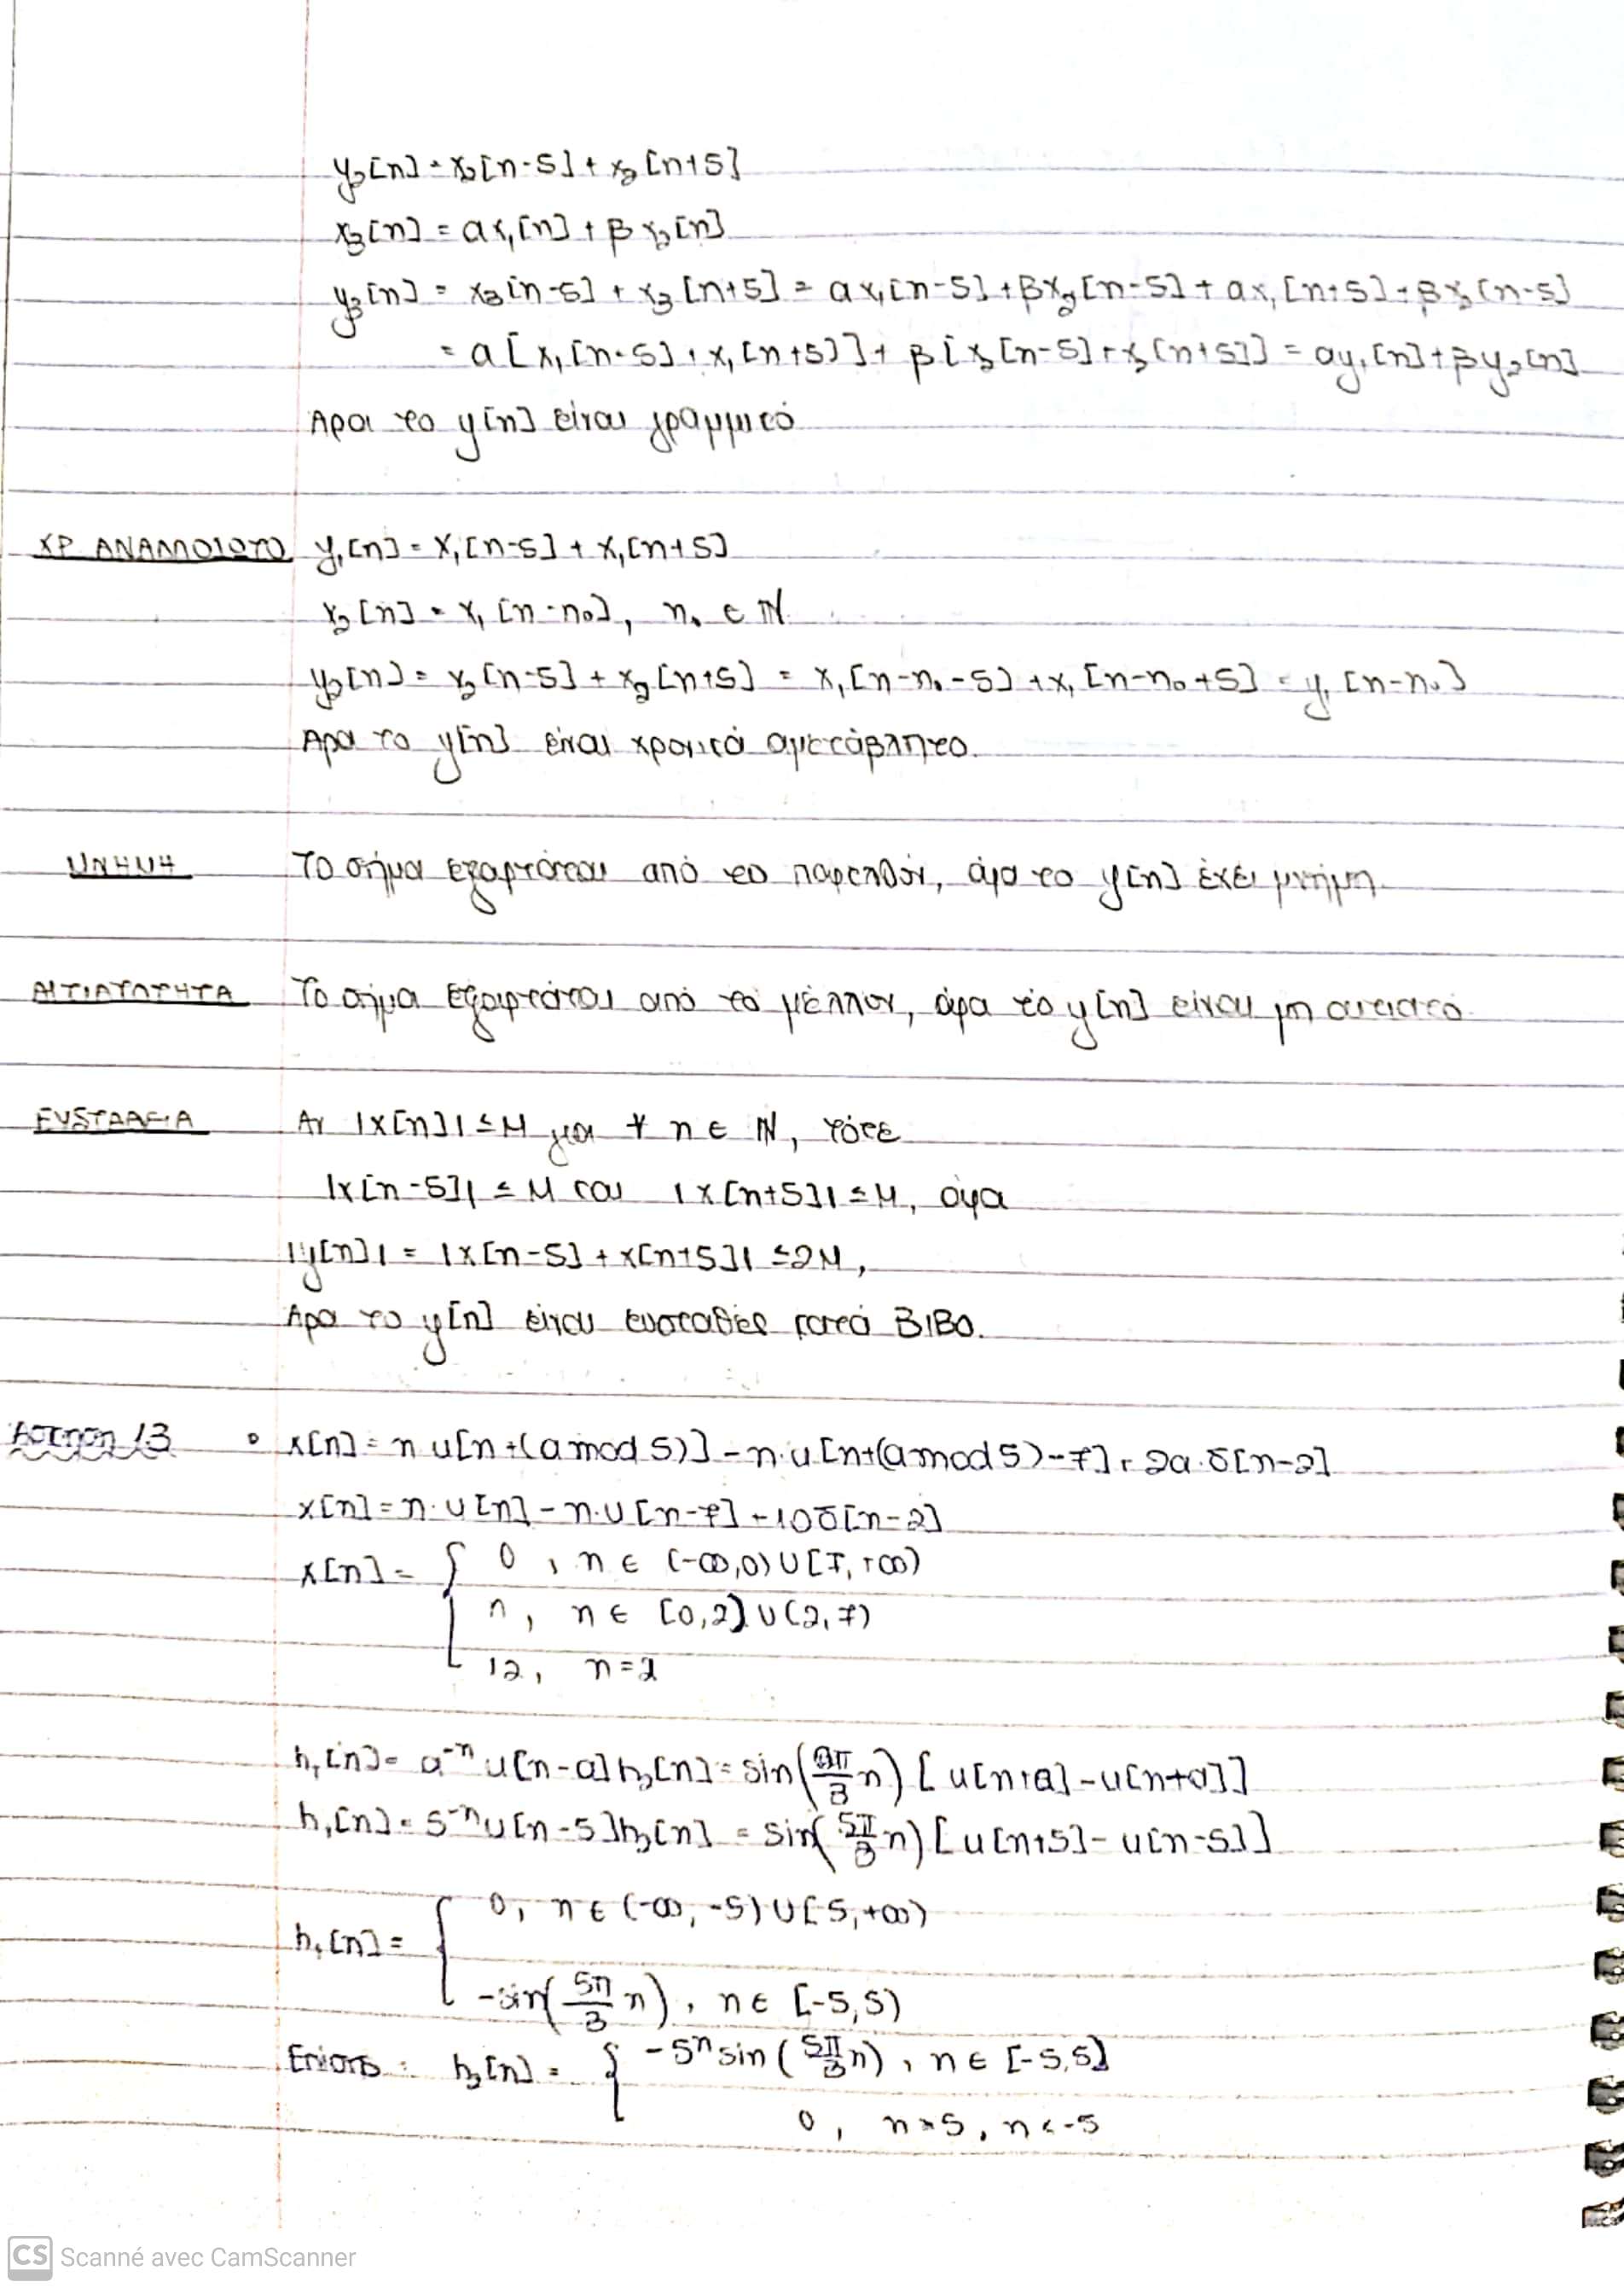 y₂[n] = x₂[n-5] + x₂[n+5]
x₃[n] = αx₁[n] + βx₂[n]
y₃[n] = x₃[n-5] + x₃[n+5] = αx₁[n-5] + βx₂[n-5] + αx₁[n+5] + βx₂[n-5]
= α[x₁[n-5] + x₁[n+5]] + β[x₂[n-5] + x₂[n+5]] = αy₁[n] + βy₂[n]
Άρα το y[n] είναι γραμμικό
ΧΡ ΑΝΑΛΛΟΙΩΤΟ y₁[n] = x₁[n-5] + x₁[n+5]
x₂[n] = x₁[n-n₀], n₀ ∈ ℕ
y₂[n] = x₂[n-5] + x₂[n+5] = x₁[n-n₀-5] + x₁[n-n₀+5] = y₁[n-n₀]
Άρα το y[n] είναι χρονικά αμετάβλητο.
ΜΝΗΜΗ Το σήμα εξαρτάται από το παρελθόν, άρα το y[n] έχει μνήμη
ΑΙΤΙΑΤΟΤΗΤΑ Το σήμα εξαρτάται από το μέλλον, άρα το y[n] είναι μη αιτιατό
ΕΥΣΤΑΘΕΙΑ Αν |x[n]| ≤ M για ∀ n ∈ ℕ, τότε
|x[n-5]| ≤ M και |x[n+5]| ≤ M, άρα
|y[n]| = |x[n-5] + x[n+5]| ≤ 2M,
Άρα το y[n] είναι ευσταθές κατά BIBO.
Άσκηση 13 • x[n] = n u[n+(a mod 5)] - n·u[n+(a mod 5)-7] + 2a·δ[n-2]
x[n] = n·u[n] - n·u[n-7] + 10δ[n-2]
x[n] = { 0, n ∈ (-∞,0)∪[7,+∞)
n, n ∈ [0,2)∪(2,7)
12, n=2
h₁[n] = a⁻ⁿ u[n-a] h₂[n] = sin(aπ/3 n) [u[n+a] - u[n+a]]
h₁[n] = 5⁻ⁿ u[n-5] h₂[n] = sin(5π/3 n) [u[n+5] - u[n-5]]
h₁[n] = { 0, n ∈ (-∞,-5)∪[5,+∞)
-sin(5π/3 n), n ∈ [-5,5)
Επίσης: h₂[n] = { -5ⁿ sin(5π/3 n), n ∈ [-5,5]
0, n>5, n<-5
CS Scanné avec CamScanner